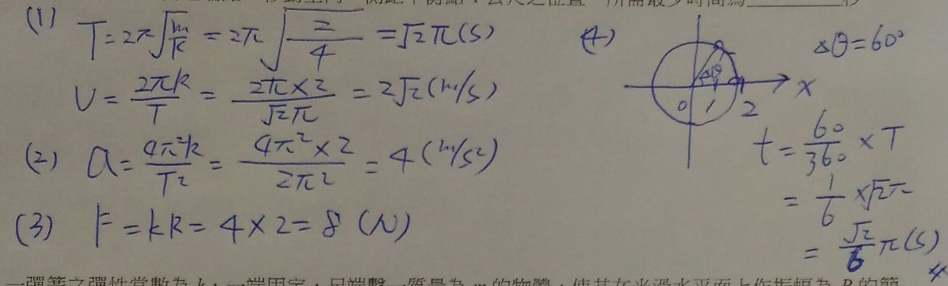 (1) T = 2π√(m/k) = 2π√(2/4) = √2π(s)
V = 2πR/T = 2π×2/√2π = 2√2(m/s)
(2) a = 4π²R/T² = 4π²×2/2π² = 4(m/s²)
(3) F = kR = 4×2 = 8 (N)
(4) Δθ = 60°
Δθ
0 1 2 X
t = 60/360 × T
= 1/6 × √2π
= √2/6 π(s)
一彈簧之彈性常數為 k，一端固定，另端繫一質量為 m 的物體，使其在光滑水平面上作振幅為 R 的簡